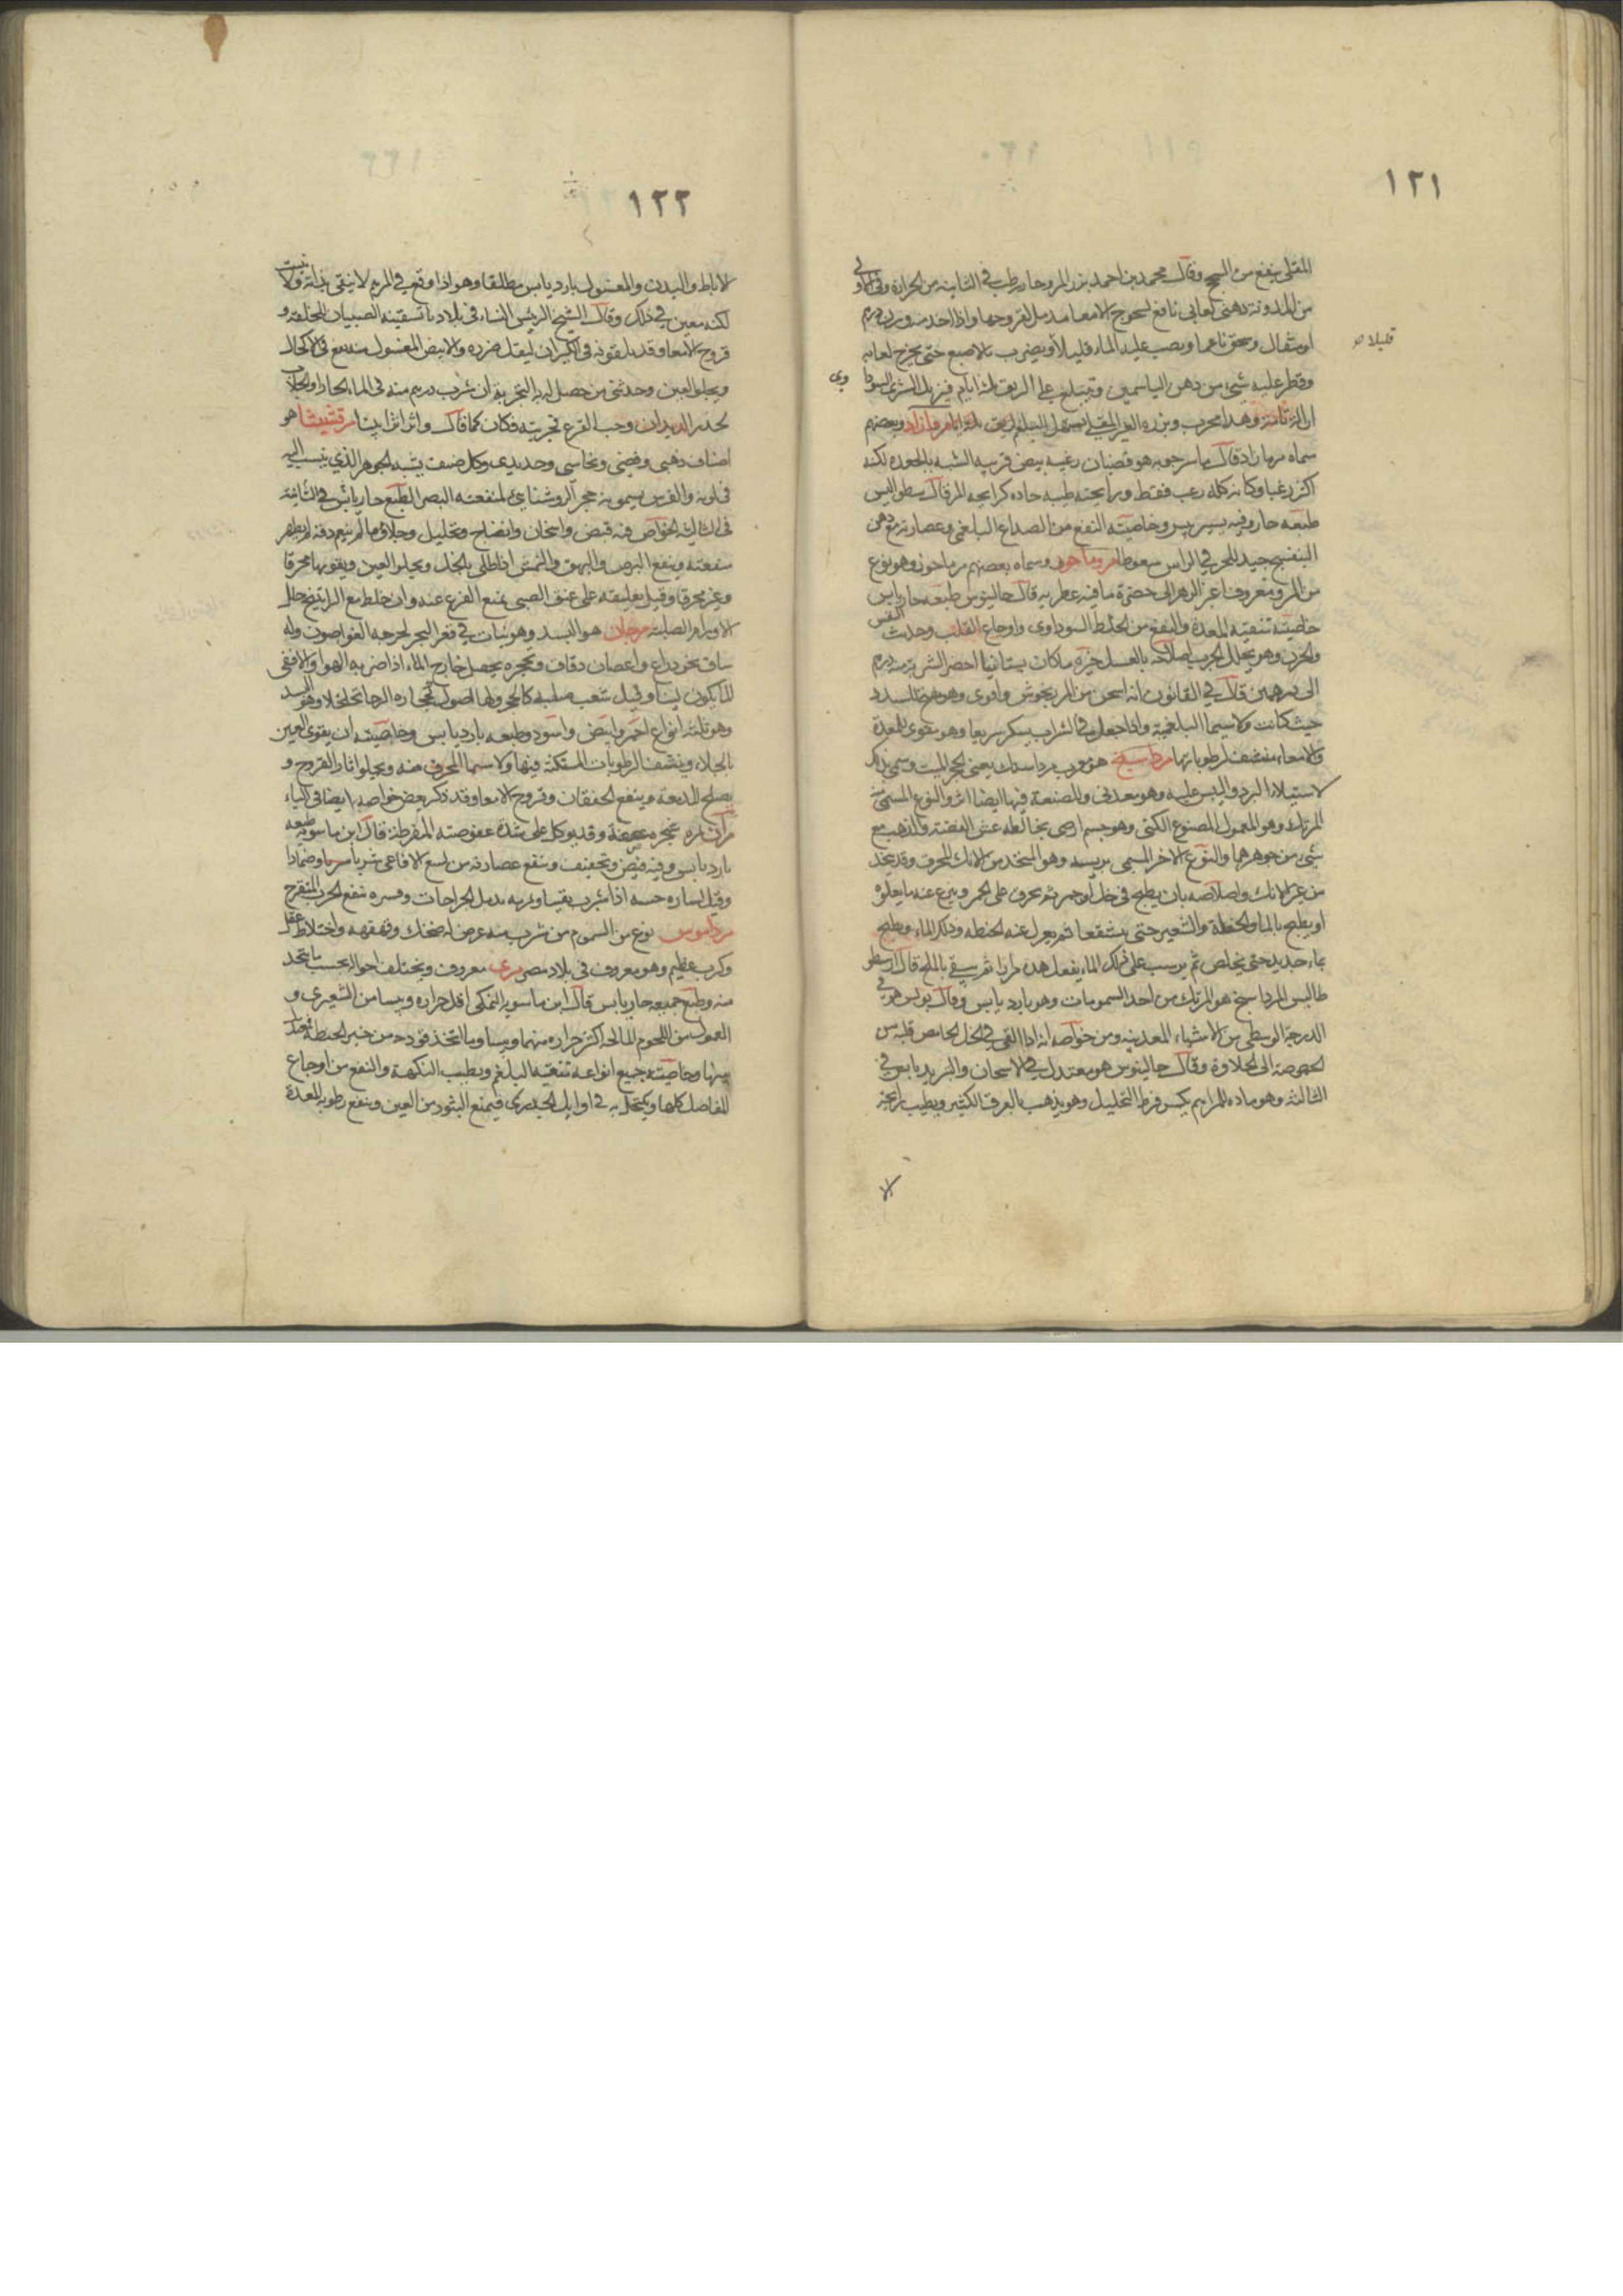 ١٢١
المقلى ينفع من السحج وقال محمد بن احمد بزر المرو حار رطب في الثانية من الحرارة وفي الاولى
من اللدونة دهنى لعابى نافع لسحوج الامعا مدمل لقروحها واذا اخذ منه وزن درهم
قليلا
او مثقال وسحق ناعما ويصب عليه الماء قليلا ويضرب بالاصبع حتى يخرج لعابه
وقطر عليه شى من دهن الياسمين ويبتلع على الريق ثلثة ايام فيزيل الشرى السوداوى
ازالة تامة وهذا مجرب وبزره الغير المقلى يسهل البلغم وبعضهم
سماه مرمازاد قال ماسرجويه هو قضبان رغبه بيض قريبه الشبه بالجعده لكنه
اكثر رغبا وكانه كله رغب فقط ورايحته طيبه حاده كرايحه المر قال
طبعه حار وفيه يسير يبس وخاصيته النفع من الصداع البلغمى وعصارته مع دهن
البنفسج جيد للحرب في الراس سعوطا مروماحوز وسماه بعضهم مرماحوز وهو نوع
من المرو معروف اغبر الزهر الى خضرة ما فيه عطريه قال جالينوس طبعه حار يابس
خاصيته تنقية المعدة والنفع من الخلط السوداوى واوجاع القلب وحديث النفس
والحزن وهو يحلل اصلاحه بالعسل خيره ما كان بستانيا اخضر الشربة منه درهم
الى درهمين قال في القانون انه اسخن من المرزنجوش واقوى وهو السدد
حيث كانت ولا سيما البلغمية واذا جعل في الشراب يسكر سريعا وهو مقوى للمعدة
والامعاء منشف لرطوباتها مرداسنج هو معرب مرداسنك يعنى الحجر الميت وسمى بذلك
لاستيلاء البرد واليبس عليه وهو معدنى وللصنعة فيها ايضا اثر والنوع المسمى
المرتك وهو المعمول المصنوع الكثير وهو جسم ارضى يخالطه غش الفضة والذهب مع
شى من جوهرهما والنوع الاخر المسمى وهو المتخذ من الانك المحرق وقد يتخذ
من غير الانك واصلاحه بان يطبخ في خل او خمر ثم يحرق على الجمر وينزع عنه ما يعلوه
او يطبخ بالماء والحنطة والشعير حتى يتشققا ثم يعزل عنه الحنطه وذلك الماء ويطبخ
بماء جديد حتى يخلص ثم يرسب على ذلك الماء يفعل هذه مرارا ثم يسقى بالملح قال ارسطو
طاليس المرداسنج هو المرتك من احد السمومات وهو بارد يابس وقال بولس هو في
الدرجة الوسطى من الاشياء المعدنيه ومن خواصه انه اذا القى في الخل الحامض قلبه من
الحموضة الى الحلاوة وقال جالينوس هو معتدل في الاسخان والتبريد يابس في
الثالثة وهو ماده للمراهم يكسر فرط التحليل وهو يذهب بالعرق الكثير ويطيب رايحة
الا
١٢٢
الاباط والبدن والمغسول بارد يابس مطلقا وهو اذا وقع في المرهم لا ينقى بذاته ولا ينبت
لكنه معين في ذلك وقال الشيخ الريس النساء في بلادنا تسقينه الصبيان للخلفة و
قروح الامعا وقد يلقونه فى الكيزان ليقتل ضرره والابيض المغسول منه يقع في الاكحال
ويجلوا العين وحدثنى من حصل له به التجربة ان شرب درهم منه فى الماء الحار
يحدر الديدان وحب القرع تجربته فكان كما قال واثر اثرا بينا مرقشيشا هو
اصناف ذهبى وفضى ونحاسى وحديدى وكل صنف يشبه الجوهر الذي ينسب اليه
في لونه والفرس يسمونه حجر الروشنايى لمنفعته البصر الطبع حار يابس في الثانية
في الثالثة الخواص فيه قبض واسخان وانضاج وتحليل وجلاء وما لم ينعم دقه لم يظهر
منفعته وينفع البرص والبهق والنمش اذا طلى بالخل ويجلوا العين ويقويها محرقا
وغير محرقا وقيل تعليقه على عنق الصبى يمنع الفزع عنه وان خلط مع الراتينج حلل
الاورام الصلبة مرجان هو البسد وهو نبات في قعر البحر يخرجه الغواصون وله
ساق نحو ذراع واغصان دقاق وتحجره يحصل خارج الماء اذا ضربه الهوا والا ففى
الماء يكون لينا وقيل شعب صلبه كالحجر ولها اصول
وهو ثلثة انواع احمر وابيض واسود وطبعه بارد يابس وخاصيته ان يقوى العين
بالجلاء وينشف الرطوبات المستكنة فيها ولا سيما المحرق منه ويجلوا اثار القروح و
يصلح للدمعة وينفع الخفقان وقروح الامعا وقد ذكر بعض خواصه ايضا فى الباء
مران ثمره شجره عفصة وقد يوكل على شدة عفوصته المفرطة قال ابن ماسويه طبعه
بارد يابس وفيه قبض وتجفيف وينفع عصارته من لسع الافاعى شربا وضمادا
بدمل الجراحات وقسره ينفع الجرب المتقرح
مرداموس نوع من السموم من شرب منه عرض له ضحك وقهقهه واختلاط عقل
وكرب عظيم وهو معروف في بلاد مصر مرى معروف ويختلف احواله بحسب ما يتخذ
منه وطبع جميعه حار يابس قال ابن ماسويه النمكى اقل حراره ويبسا من الشعيرى و
المعمول من اللحوم المالحه اكثر حراره منهما ويبسا وما اتخذ فودجه من خبز الحنطة
منها وخاصيته جميع انواعه تنقية البلغم ويطيب النكهة والنفع من اوجاع
المفاصل كلها ويكتحل به في اوايل الجدرى فيمنع البثور من العين وينفع رطوبه المعدة